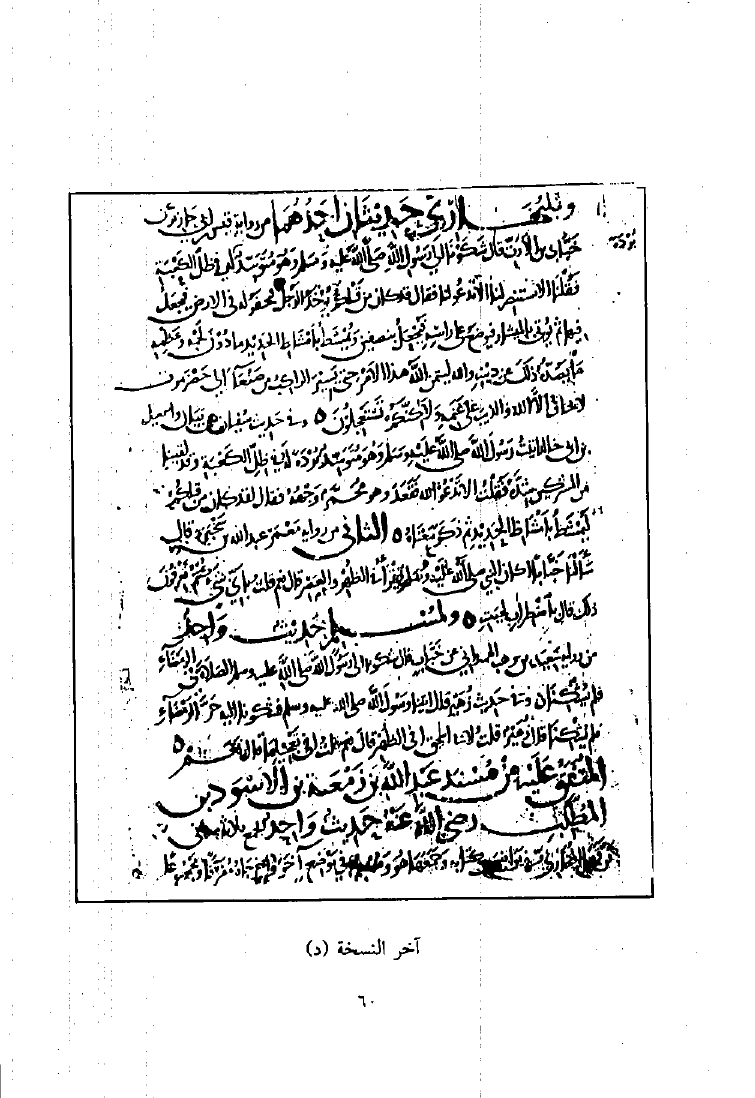 وللبخاري حديثان أحدهما من رواية قيس بن أبي حازم عن
خباب بن الأرت قال شكونا إلى رسول الله صلى الله عليه وسلم وهو متوسد بردة له في ظل الكعبة
فقلنا ألا تستنصر لنا ألا تدعو لنا فقال قد كان من قبلكم يؤخذ الرجل فيحفر له في الأرض فيجعل
فيها ثم يؤتى بالميشار فيوضع على رأسه فيجعل نصفين ويمشط بأمشاط الحديد ما دون لحمه وعظمه
ما يصده ذلك عن دينه والله ليتمن الله هذا الأمر حتى يسير الراكب من صنعاء إلى حضرموت
لا يخاف إلا الله والذئب على غنمه ولكنكم تستعجلون ٥ وفي حديث سفيان عن بيان وإسمعيل
بن أبي خالد أتيت رسول الله صلى الله عليه وسلم وهو متوسد بردة له في ظل الكعبة وقد لقينا
من المشركين شدة فقلت ألا تدعو الله فقعد وهو محمر وجهه فقال لقد كان من قبلكم
ليمشط بأمشاط الحديد ثم ذكر معناه ٥ الثاني من رواية معمر عبد الله بن سخبرة قال
سألنا خبابا أكان النبي صلى الله عليه وسلم يقرأ في الظهر والعصر قال نعم قلت بأي شيء كنتم تعرفون
ذلك قال باضطراب لحيته ٥ ولمسلم حديث واحد
من رواية سعيد بن وهب الهمداني عن خباب قال شكونا إلى رسول الله صلى الله عليه وسلم الصلاة في الرمضاء
فلم يشكنا وفي حديث زهير قال أتينا رسول الله صلى الله عليه وسلم فشكونا إليه حر الرمضاء
فلم يشكنا قال زهير قلت لأبي إسحق أفي الظهر قال نعم قلت أفي تعجيلها قال نعم ٥
المتفق عليه من مسند عبد الله بن زمعة بن الأسود بن
المطلب رضي الله عنه حديث واحد يجمع ثلاثة معاني
آخر النسخة (د)
٦٠